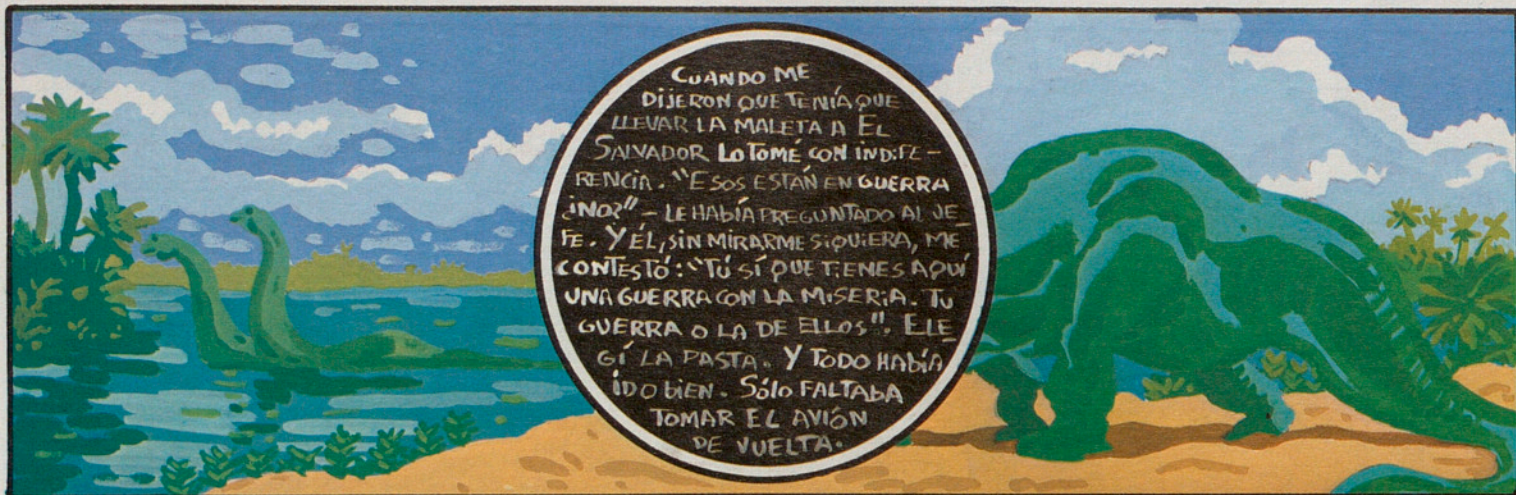 CUANDO ME
DIJERON QUE TENÍA QUE
LLEVAR LA MALETA A EL
SALVADOR LO TOMÉ CON INDIFE-
RENCIA. "ESOS ESTÁN EN GUERRA
¿NO?" - LE HABÍA PREGUNTADO AL JE-
FE. Y ÉL, SIN MIRARME SIQUIERA, ME
CONTESTÓ: "TÚ SÍ QUE TIENES AQUÍ
UNA GUERRA CON LA MISERIA. TU
GUERRA O LA DE ELLOS". ELE-
GÍ LA PASTA. Y TODO HABÍA
IDO BIEN. SÓLO FALTABA
TOMAR EL AVIÓN
DE VUELTA.